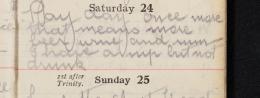 Saturday 24
Pay day once more
that means more
beer wine and rum
have a nip but not
drunk
1st after
Trinity.
Sunday 25